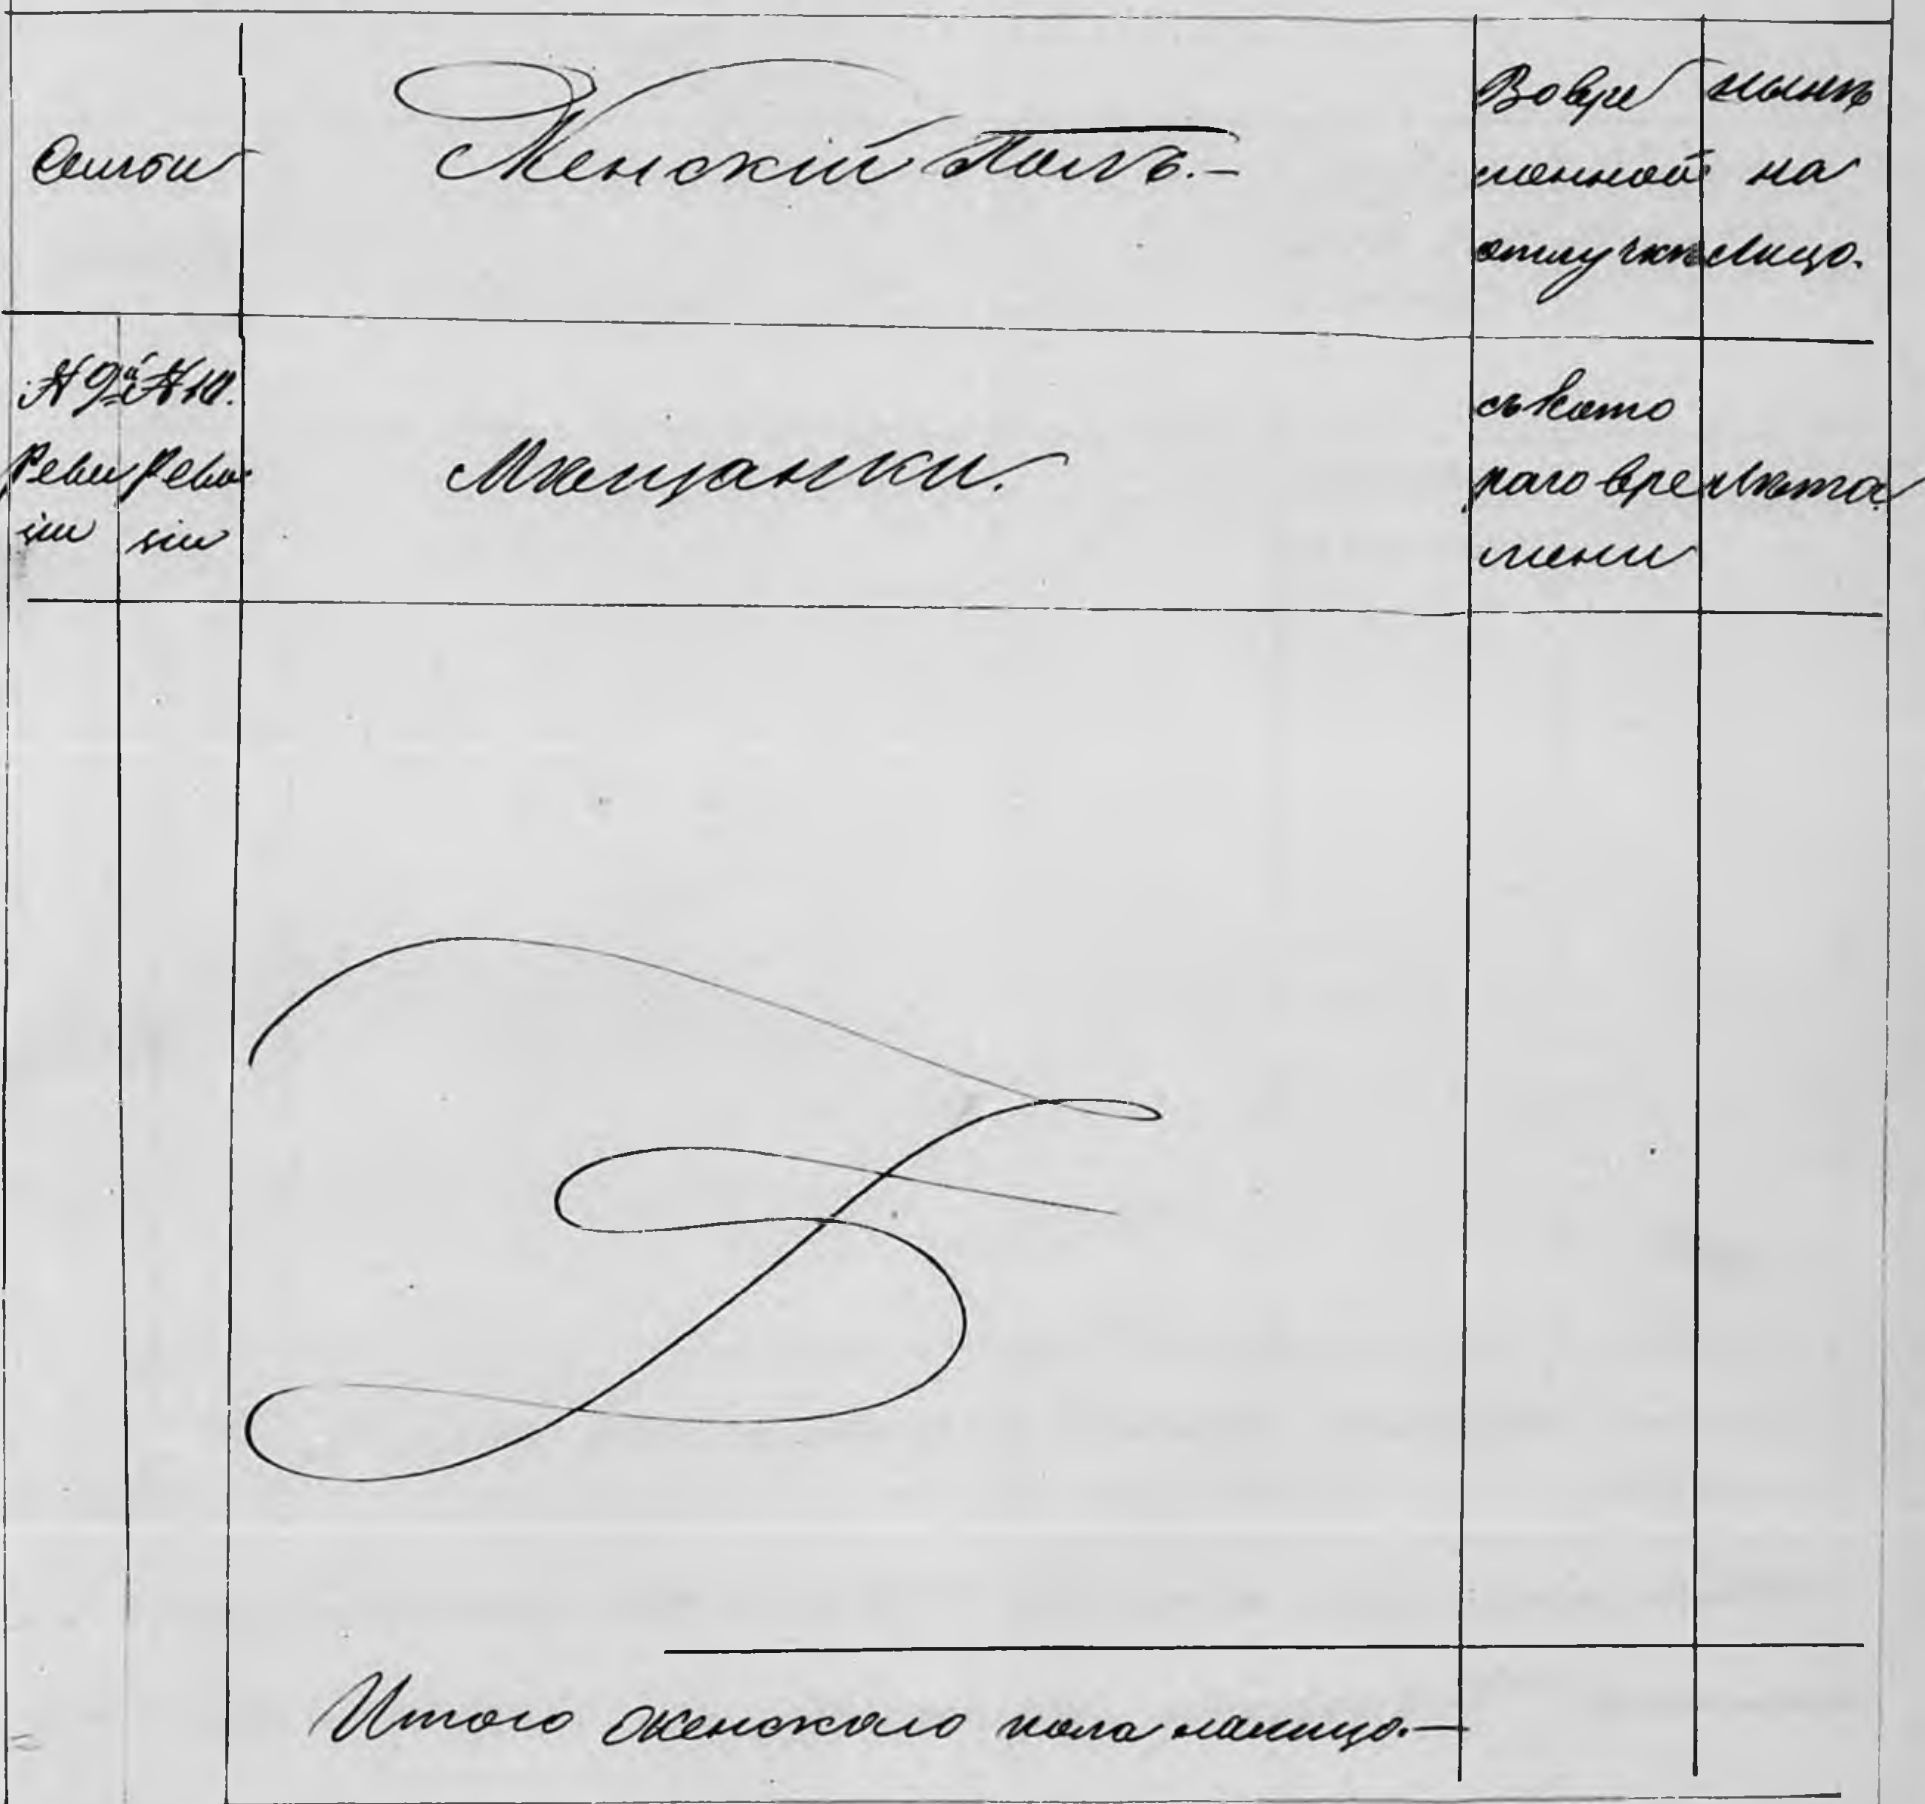 Семьи
Женскій Полъ.-
Вовре
менной
отлучкѣ
нынѣ
на
лицо.
№ 9й
Реви
зіи
№ 10.
Реви
зіи
Мѣщанки.
съ Кото
раго вре
мени
Лѣта.
Итого женскаго пола налицо.—